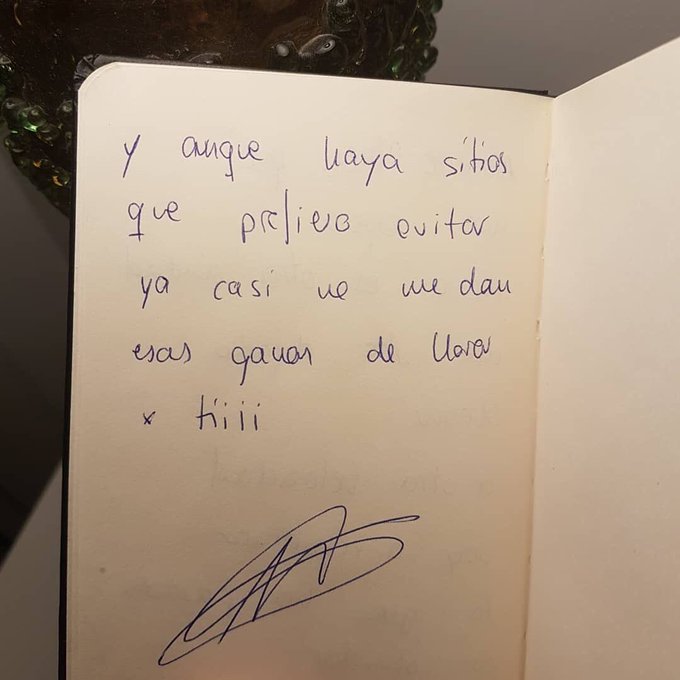 y aunque haya sitios
que prefiero evitar
ya casi no me dan
esas ganas de llorar
x tiiii